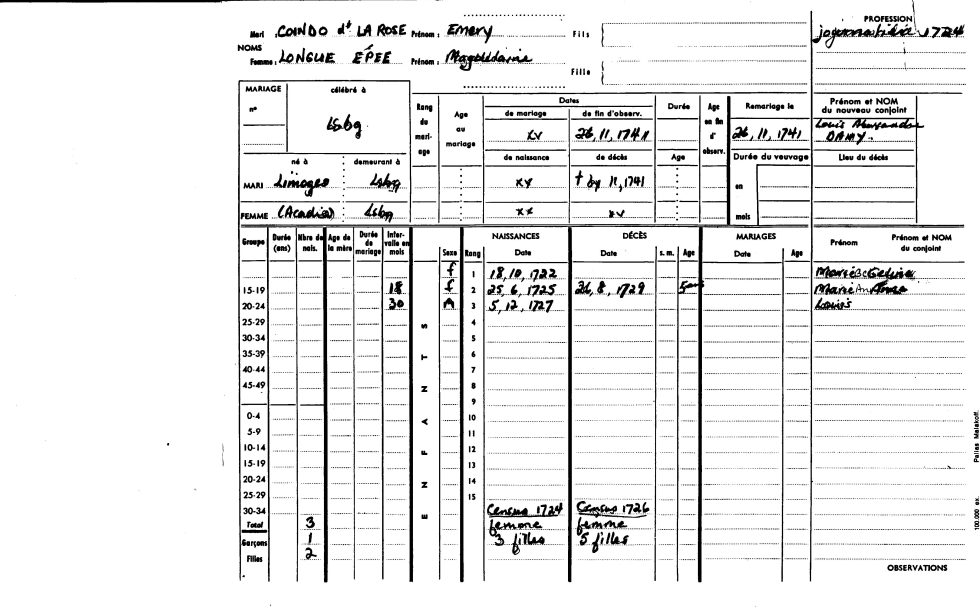 PROFESSION
Mari : COINDO dt LA ROSE Prénom : Emery Fils
1724
NOMS
Femme : LONGUE EPÉE Prénom : Magdelaine
Fille
MARIAGE célébré à
n° Lsbg
Rang du mariage
Age au mariage
Dates
de mariage de fin d'observ.
xx 26, 11, 1741
Durée
Age en fin d'observ.
Remariage le
26, 11, 1741
Prénom et NOM du nouveau conjoint
Louis Alexandre
DAMY
né à demeurant à
de naissance de décès
Age
Durée du veuvage
Lieu du décès
MARI Limoges Lsbg xx † by 11, 1741
en
FEMME (Acadia) Lsbg xx xx
mois
Groupe Durée (ans) Nbre de nais. Age de la mère Durée de mariage Intervalle en mois
ENFANTS
Sexe Rang
NAISSANCES Date
DÉCÈS Date s. m. Age
MARIAGES Date Age
Prénom Prénom et NOM du conjoint
f 1 18, 10, 1722 Marie
15-19 18 f 2 25, 6, 1725 26, 8, 1729 Marie
20-24 30 3 5, 12, 1727 Louis
25-29 4
30-34 5
35-39 6
40-44 7
45-49 8
9
0-4 10
5-9 11
10-14 12
15-19 13
20-24 14
25-29 15
30-34 Census 1724 Census 1726
Total 3 femme femme
Garçons 1 3 filles 5 filles
Filles 2
OBSERVATIONS
100.000 ex. Pailles Malakoff.